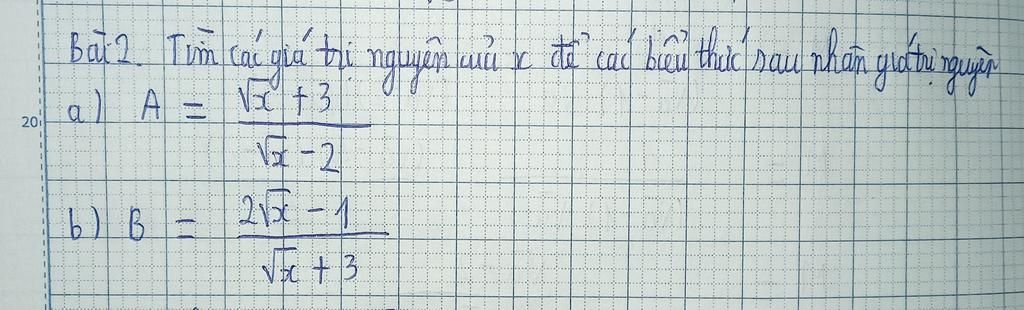 Bài 2. Tìm các giá trị nguyên của x để các biểu thức sau nhận giá trị nguyên
a) A = (√x + 3)/(√x - 2)
20
b) B = (2√x - 1)/(√x + 3)